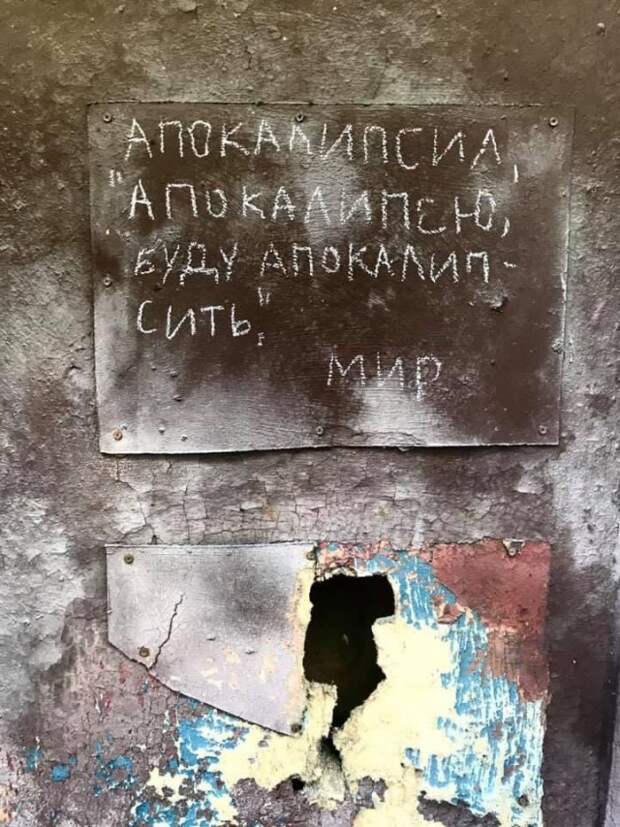 АПОКАЛИПСИЛ,
"АПОКАЛИПСЮ,
БУДУ АПОКАЛИП-
СИТЬ."
МИР